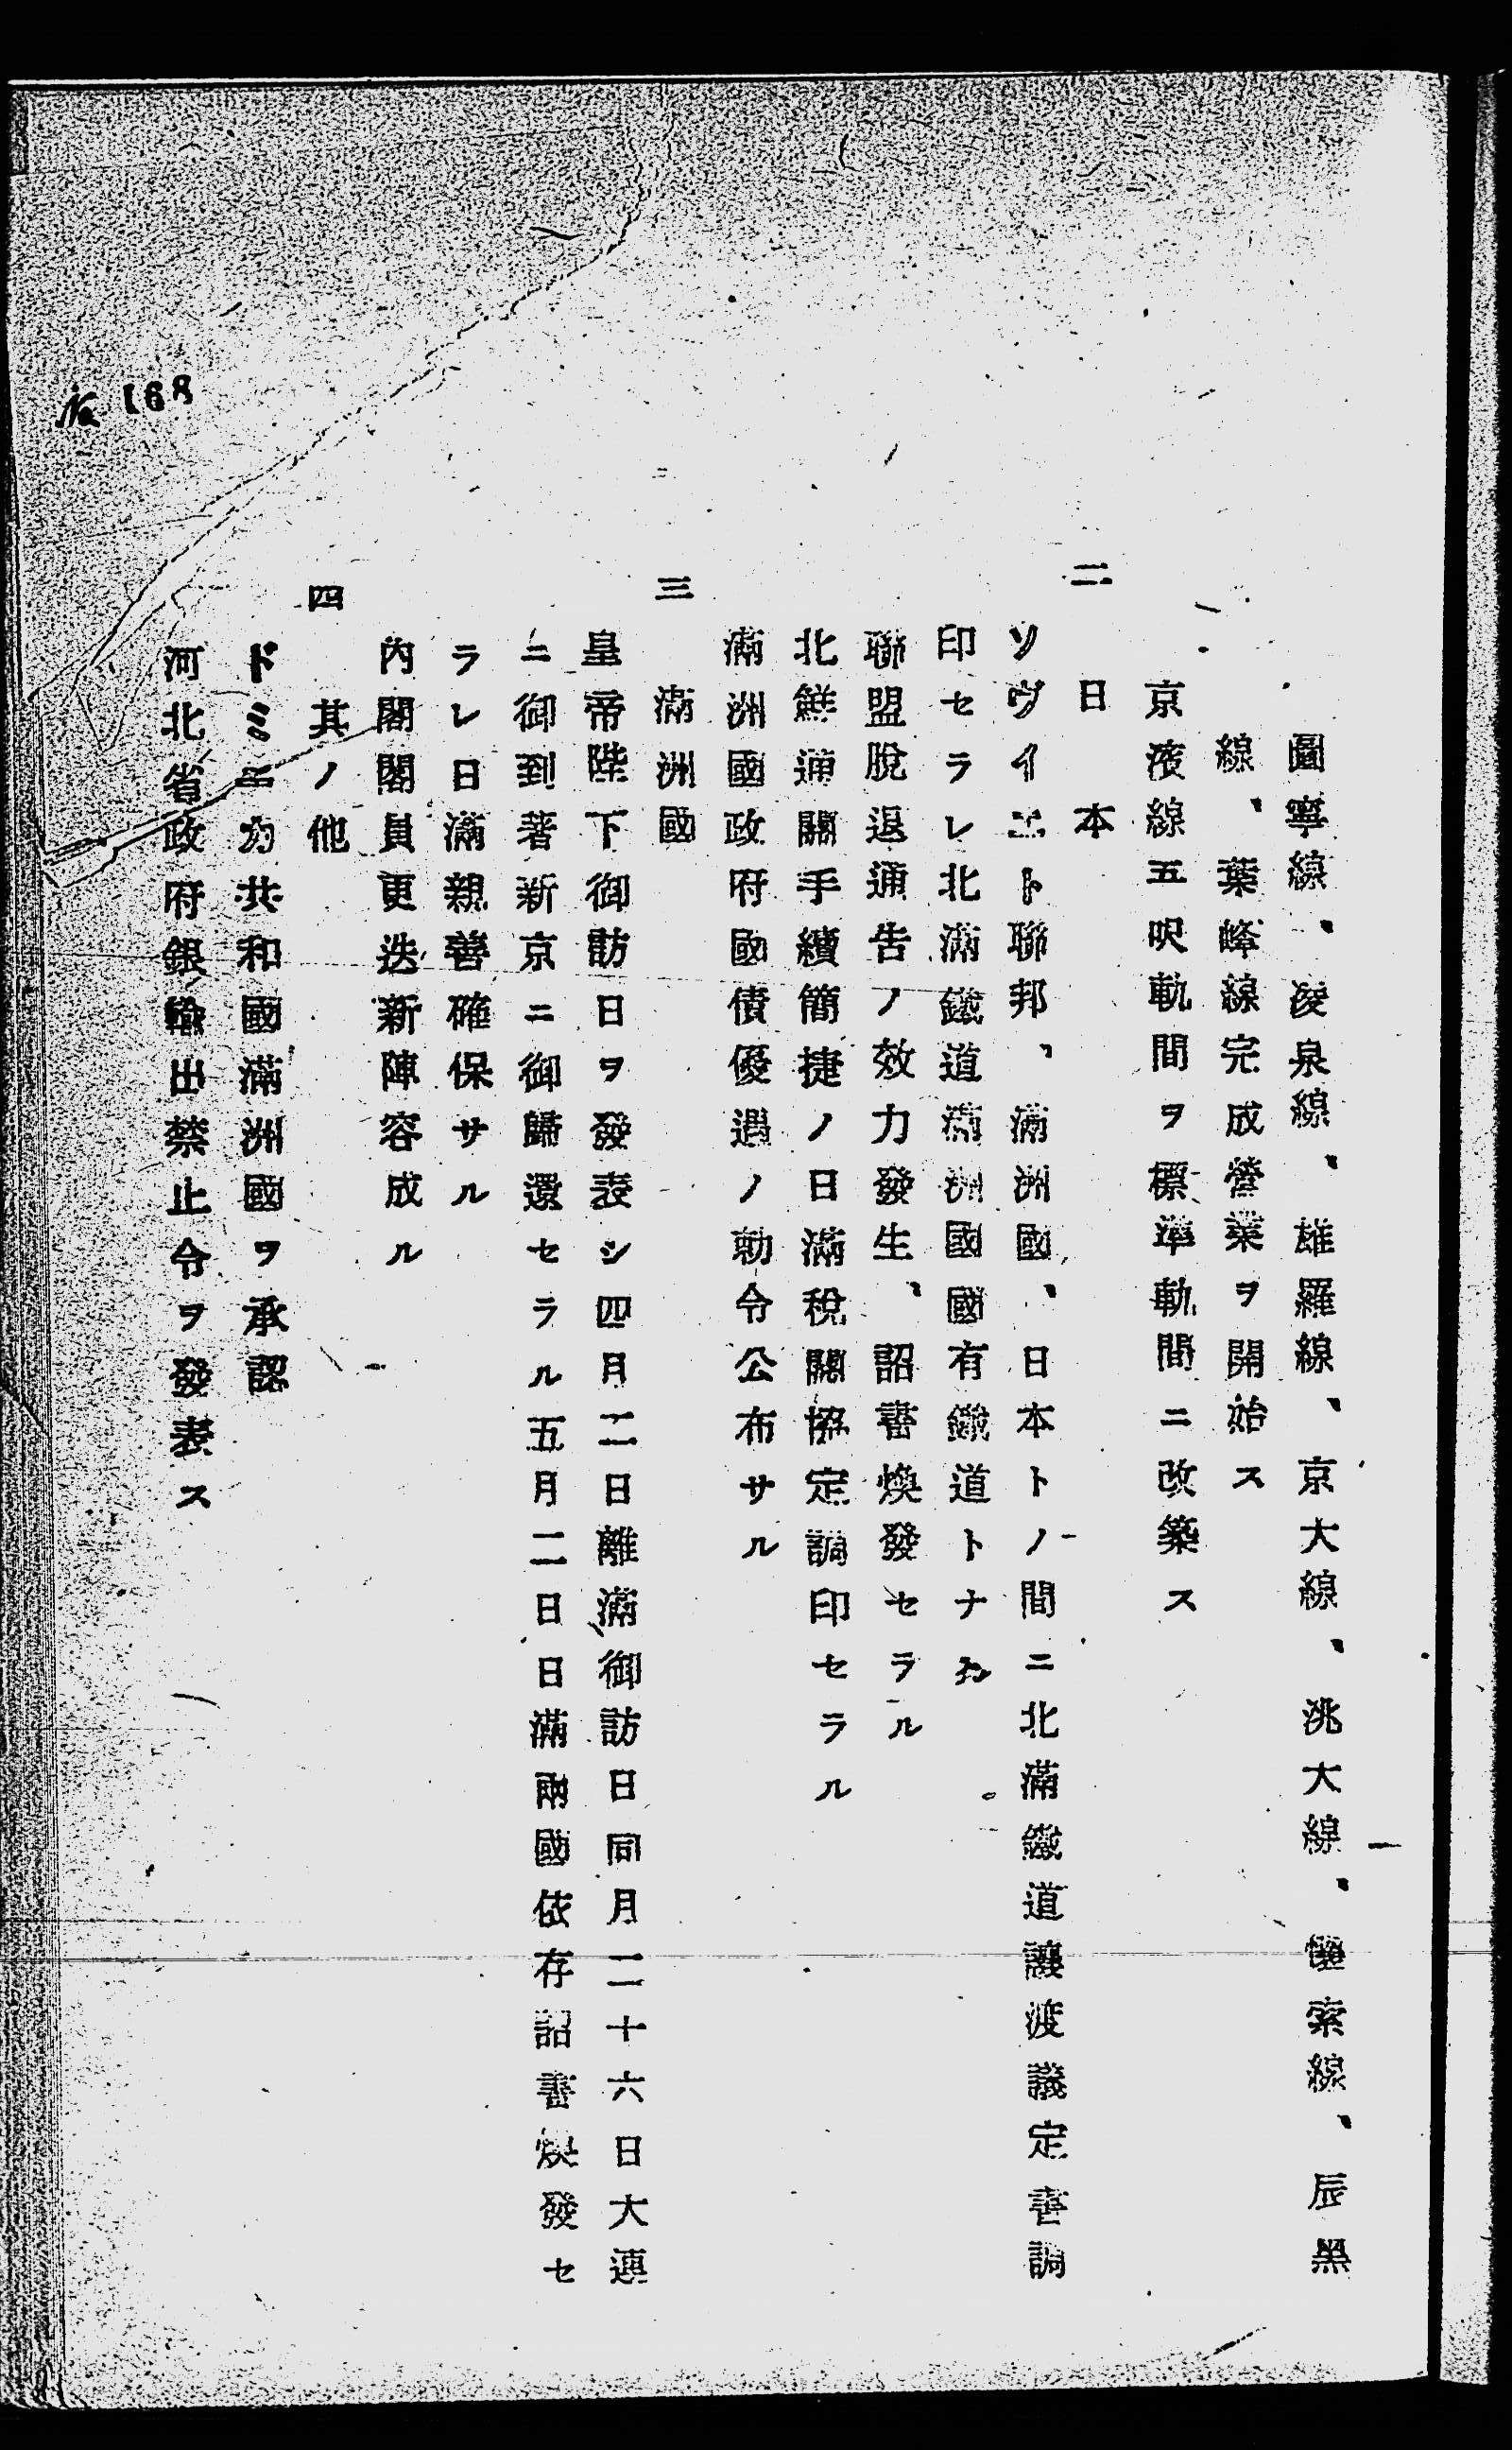 圖寧線、凌泉線、雄羅線、京大線、洮大線、懷索線、辰黑
線、葉峰線完成營業ヲ開始ス
京濱線五呎軌間ヲ標準軌間ニ改築ス
二 日本
ソヴイエト聯邦、滿洲國、日本トノ間ニ北滿鐵道讓渡議定書調
印セラレ北滿鐵道滿洲國國有鐵道トナル。
聯盟脫退通告ノ效力發生、詔書煥發セラル
北鮮通關手續簡捷ノ日滿稅關協定調印セラル
滿洲國政府國債優遇ノ勅令公布サル
三 滿洲國
皇帝陛下御訪日ヲ發表シ四月二日離滿御訪日同月二十六日大連
ニ御到著新京ニ御歸還セラル五月二日日滿兩國依存詔書煥發セ
ラレ日滿親善確保サル
內閣閣員更迭新陣容成ル
四 其ノ他
ドミニカ共和國滿洲國ヲ承認
河北省政府銀輸出禁止令ヲ發表ス
№168